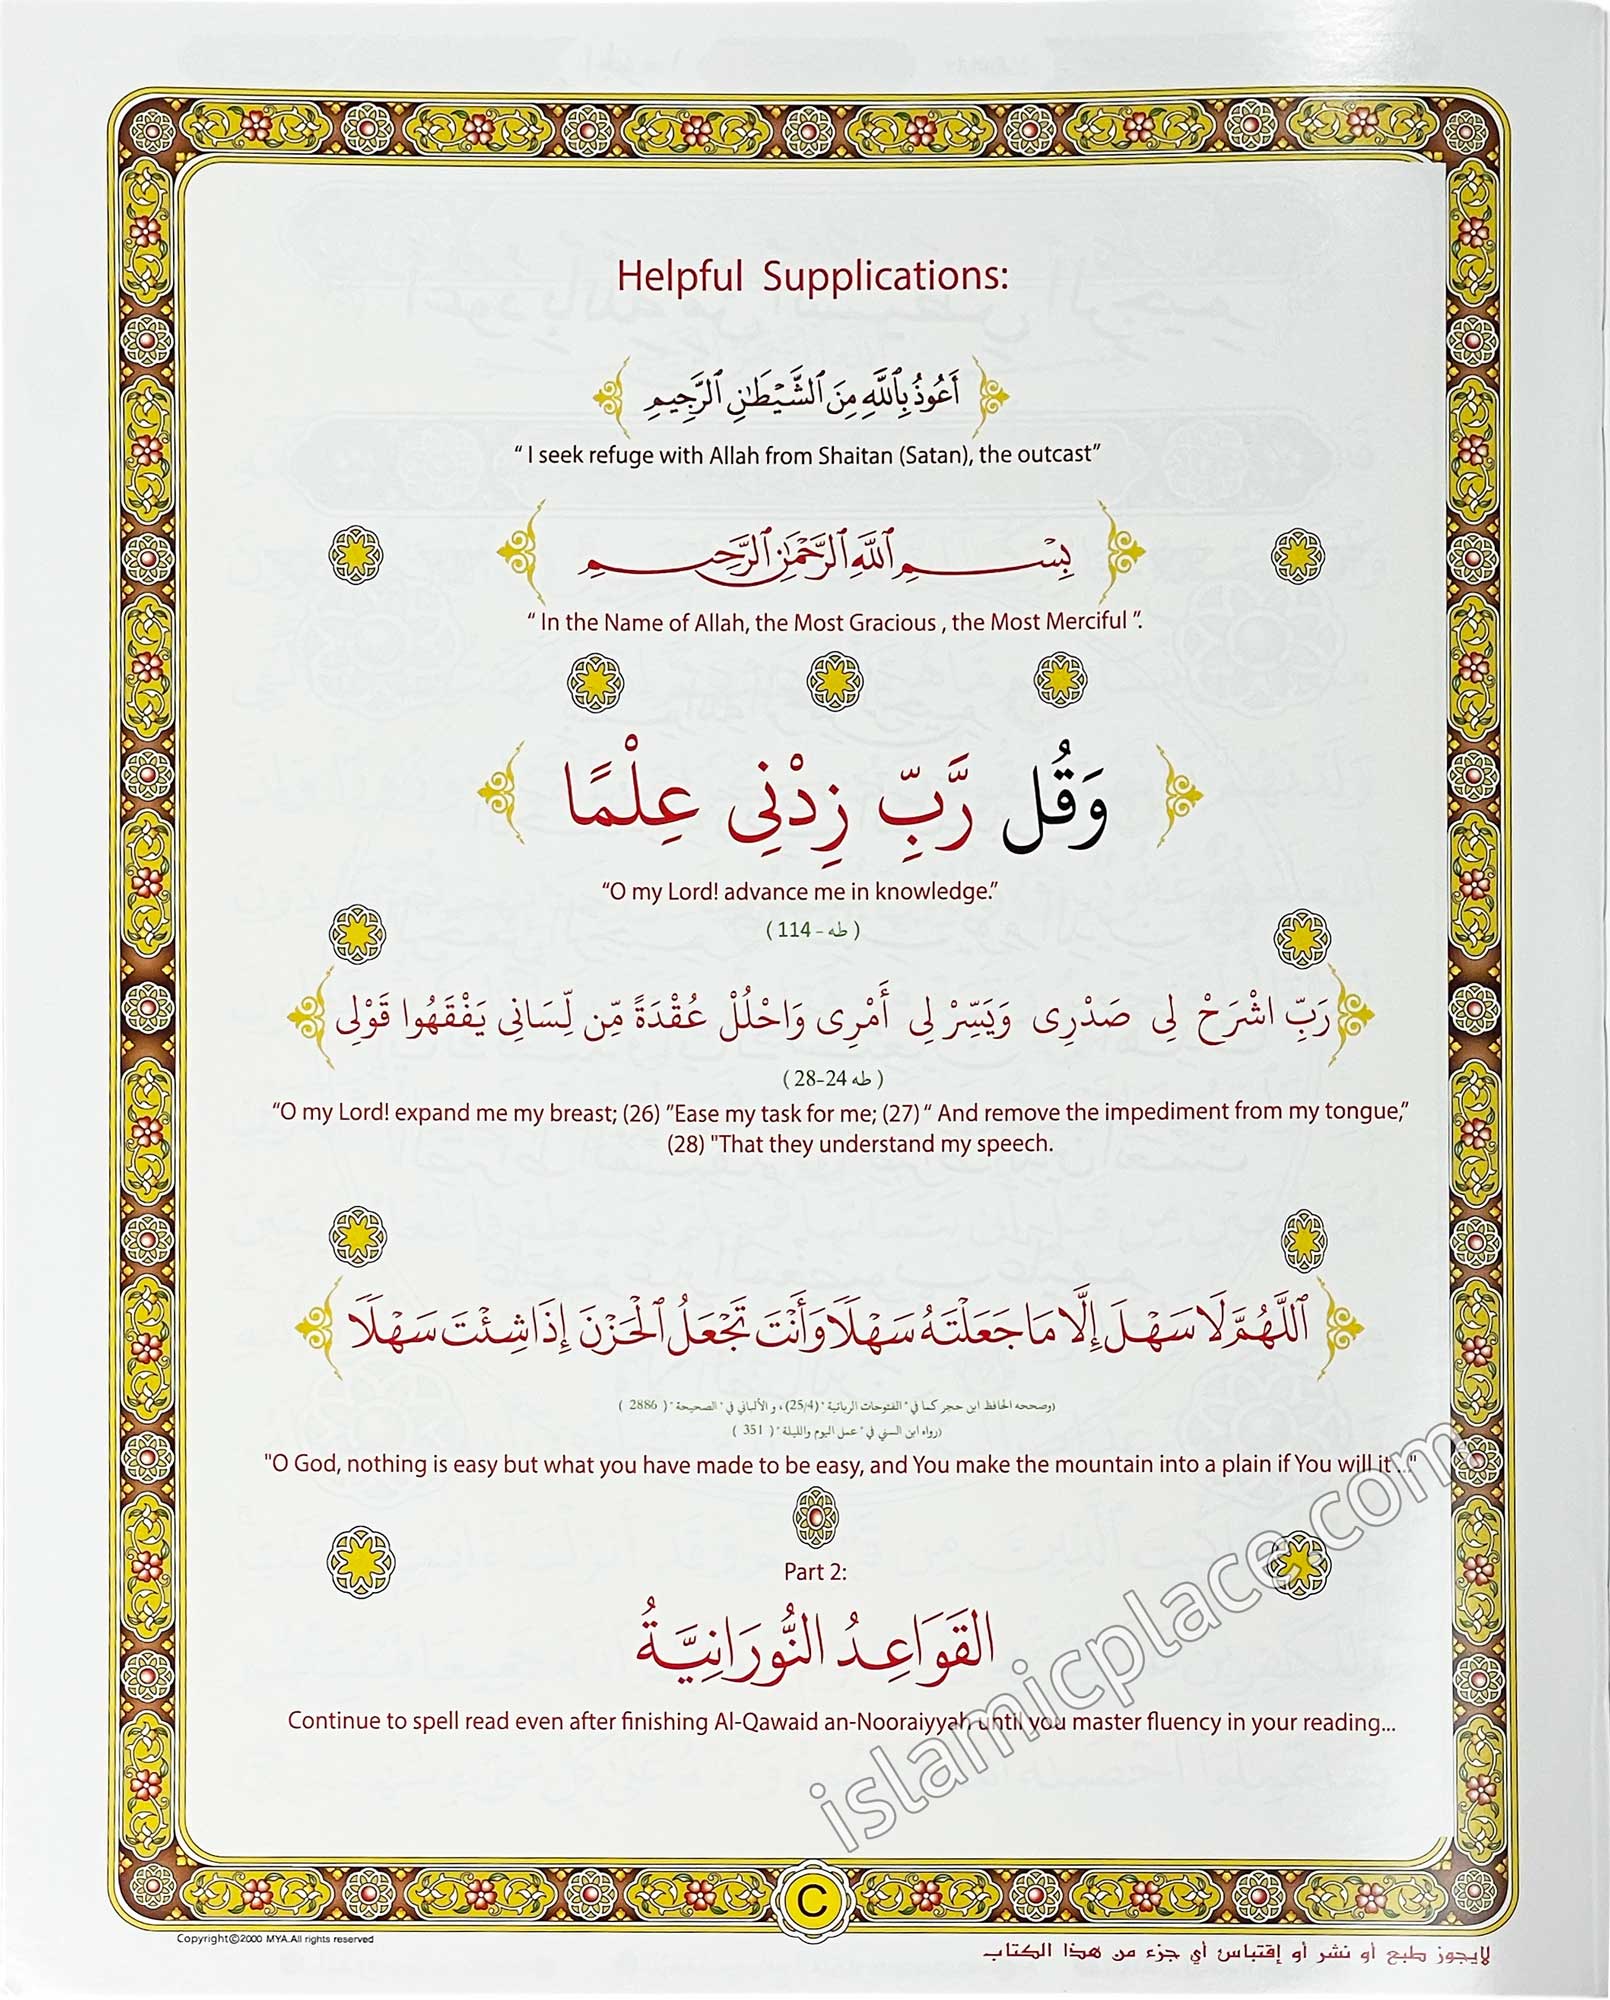 Helpful Supplications:
أَعُوذُ بِٱللَّهِ مِنَ ٱلشَّيْطَٰنِ ٱلرَّجِيمِ
“ I seek refuge with Allah from Shaitan (Satan), the outcast”
بِسْمِ ٱللَّهِ ٱلرَّحْمَٰنِ ٱلرَّحِيمِ
“ In the Name of Allah, the Most Gracious , the Most Merciful ”.
وَقُل رَّبِّ زِدْنِي عِلْمًا
“O my Lord! advance me in knowledge.”
( طه - 114 )
رَبِّ اشْرَحْ لِي صَدْرِي وَيَسِّرْ لِي أَمْرِي وَاحْلُلْ عُقْدَةً مِّن لِّسَانِي يَفْقَهُوا قَوْلِي
( طه 24-28 )
“O my Lord! expand me my breast; (26) ”Ease my task for me; (27) “ And remove the impediment from my tongue,”
(28) "That they understand my speech.
اللَّهُمَّ لَا سَهْلَ إِلَّا مَا جَعَلْتَهُ سَهْلًا وَأَنْتَ تَجْعَلُ ٱلْحَزْنَ إِذَا شِئْتَ سَهْلًا
(وصححه الحافظ ابن حجر كما في " الفتوحات الربانية " (25/4) ، و الألباني في " الصحيحة " ( 2886 )
(رواه ابن السني في " عمل اليوم والليلة " ( 351 )
"O God, nothing is easy but what you have made to be easy, and You make the mountain into a plain if You will it ..."
Part 2:
القَوَاعِدُ النُّورَانِيَّةُ
Continue to spell read even after finishing Al-Qawaid an-Nooraiyyah until you master fluency in your reading...
islamicplace.com
C
Copyright©2000 MYA.All rights reserved
لايجوز طبع أو نشر أو إقتباس أي جزء من هذا الكتاب